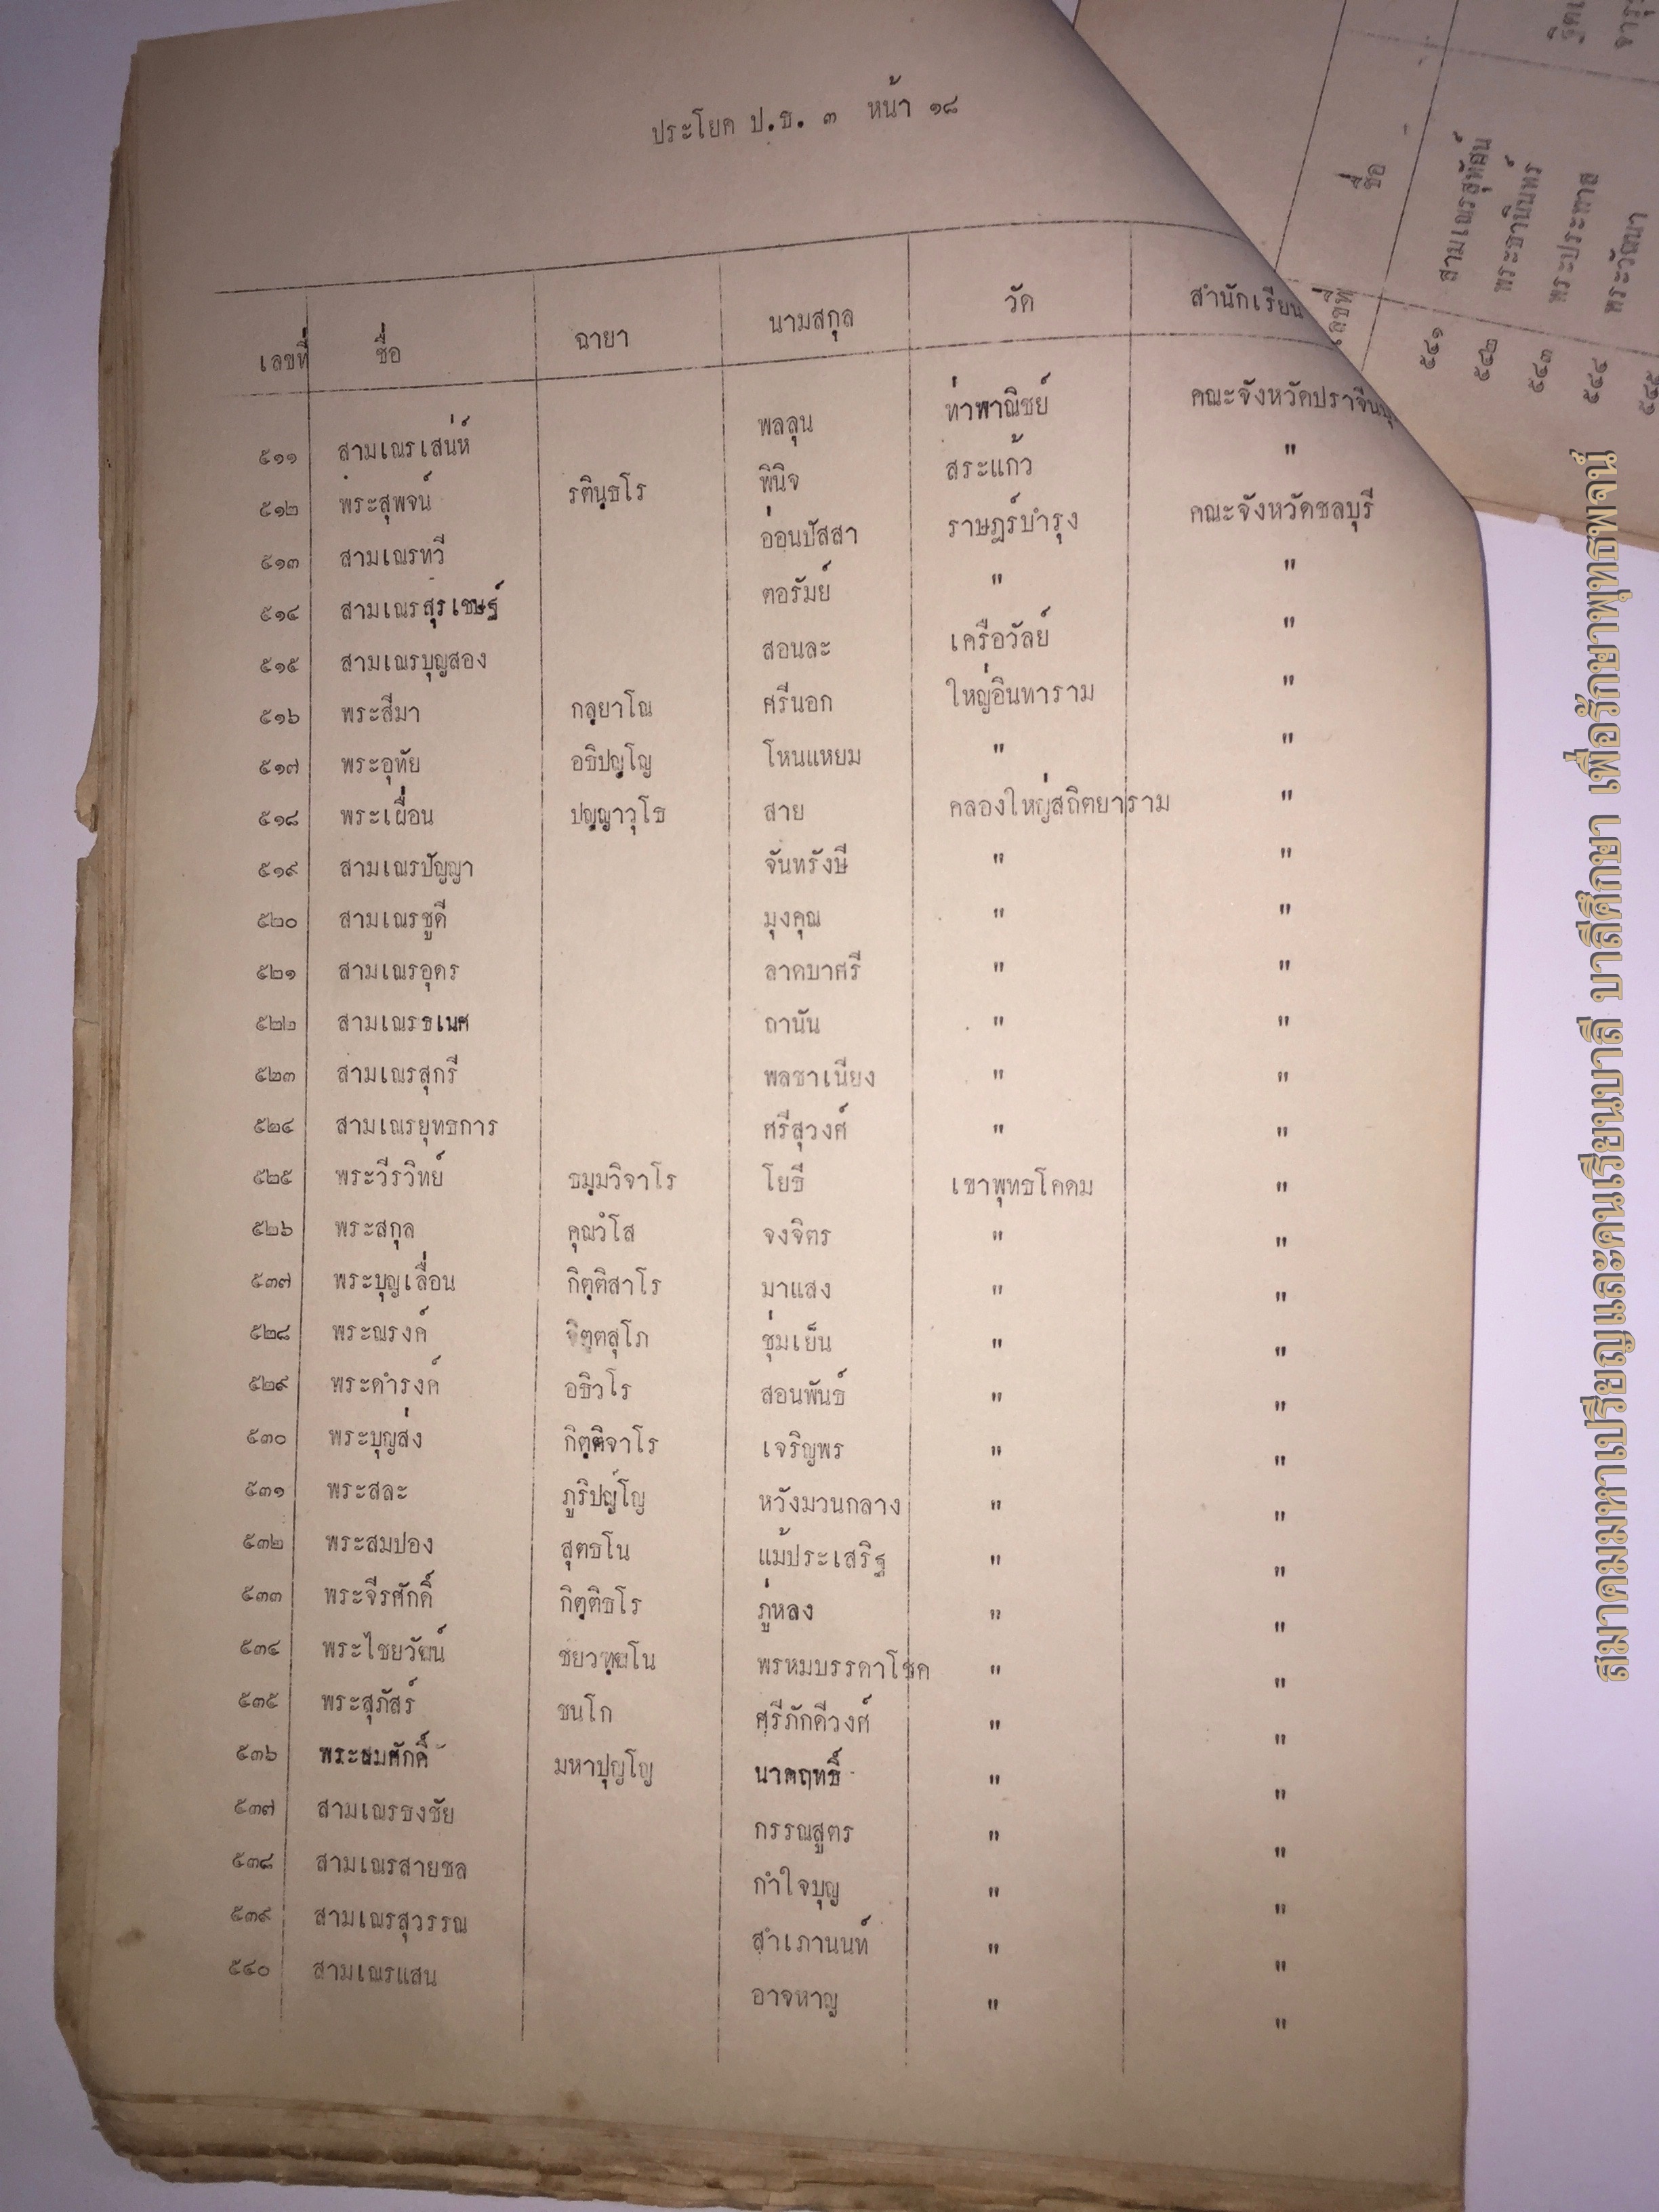 ประโยค ป.ธ. ๓ หน้า ๑๘
เลขที่ ชื่อ ฉายา นามสกุล วัด สำนักเรียน
๕๑๑ สามเณรเสน่ห์ พลลุน ท่าพาณิชย์ คณะจังหวัดปราจีน
๕๑๒ พระสุพจน์ รตินฺธโร พินิจ สระแก้ว "
๕๑๓ สามเณรทวี อ่อนปัสสา ราษฎร์บำรุง คณะจังหวัดชลบุรี
๕๑๔ สามเณรสุรเชษฐ์ ตอรัมย์ " "
๕๑๕ สามเณรบุญสอง สอนละ เครือวัลย์ "
๕๑๖ พระสีมา กลฺยาโณ ศรีนอก ใหญ่อินทาราม "
๕๑๗ พระอุทัย อธิปญฺโญ โหนแหยม " "
๕๑๘ พระเผื่อน ปญฺญาวุโธ สาย คลองใหญ่สถิตยาราม "
๕๑๙ สามเณรปัญญา จันทรังษี " "
๕๒๐ สามเณรชูดี มุงคุณ " "
๕๒๑ สามเณรอุดร ลาดบาศรี " "
๕๒๒ สามเณรธเนศ ถานัน " "
๕๒๓ สามเณรสุกรี พลชาเนียง " "
๕๒๔ สามเณรยุทธการ ศรีสุวงศ์ " "
๕๒๕ พระวีรวิทย์ ธมฺมวิจาโร โยธี เขาพุทธโคดม "
๕๒๖ พระสกุล คุณวํโส จงจิตร " "
๕๓๗ พระบุญเลื่อน กิตฺติสาโร มาแสง " "
๕๒๘ พระณรงค์ จิตฺตสุโภ ชุ่มเย็น " "
๕๒๙ พระดำรงค์ อธิวโร สอนพันธ์ " "
๕๓๐ พระบุญส่ง กิตฺติจาโร เจริญพร " "
๕๓๑ พระสละ ภูริปญฺโญ หวังมวนกลาง " "
๕๓๒ พระสมปอง สุตธโน แม้ประเสริฐ " "
๕๓๓ พระจีรศักดิ์ กิตฺติธโร ภู่หลง " "
๕๓๔ พระไชยวัฒน์ พรหมบรรดาโชค " "
๕๓๕ พระสุภัสร์ ชนโก ศรีภักดีวงศ์ " "
๕๓๖ พระสมศักดิ์ มหาปุญฺโญ นาคฤทธิ์ " "
๕๓๗ สามเณรธงชัย กรรณสูตร " "
๕๓๘ สามเณรสายชล กำใจบุญ " "
๕๓๙ สามเณรสุวรรณ สำเภานนท์ " "
๕๔๐ สามเณรแสน อาจหาญ " "
เลขที่ ชื่อ
๕๔๑ สามเณรสุทัศน์
๕๔๒ พระธานินทร์
๕๔๓ พระประพาส
๕๔๔ พระวัฒนา
๕๔๕
สมาคมมหาเปรียญและคนเรียนบาลี บาลีศึกษา เพื่อรักษาพุทธพจน์